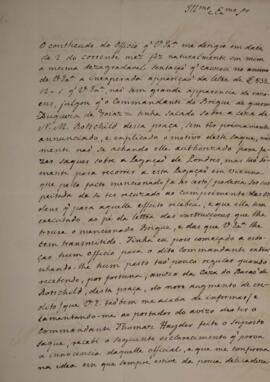 Illmo. e Exmo. Sr.
O contheudo do Officio q' V. Exa. me dirigio em data
de 2 do corrente mez fez naturalmente em mim
a mesma dezagradavel sensação q' cauzou no animo
de V. Exa. a inesperada apparição da letra de £ 532.
12-1 q' V. Exa. não sem grande apparencia de
razão, julgou q' o Commandante do Brigue de guerra
Duqueza de Goiaz tinha sacado sobre a caza de
N. M. Rotschild dessa praça, sem ter previamente
annunciado, e explicado o motivo deste saque,
não se achando elle authorizado para fazer
saques sobre a Legação de Londres, mas tão
sómente para recorrer a esta Legação em Vienna
que pelo facto mencionado
de se ter recuzado ao cumprimento das
ordens q' para aquelle effeito recebeu, e que ella tem
executado ao pé da letra das instrucções que lhe
trouxe o mencionado Brigue, e das que V. Exa. lhe
tem transmittido. Tinha eu pois começado a
este hum officio para o dito Commandante
lhe hum passo tão pouco regular quando
recebendo, por fortuna, aviso da Caza do Barão de
Rotschild, desta praça, do novo augmento de
credito q' V. Exa. tão bem me acaba de informar, e
lamentando-me ao portador do avizo de ter o
Commandante Thomas Hayden feito o supposto
saque, recebi o seguinte esclarecimento q' prova
a innocencia daquelle official, e que me confirma
na idéa em que sempre estive da pouca delicadeza